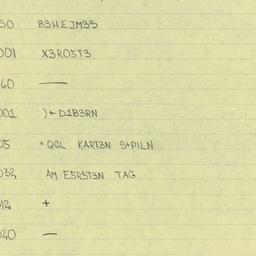 50 B3HEJM3S
001 X3ROST3
60 —
001 )+D1B3RN
05 +QGL KART3N S+PILN
032 AM E5RST3N TAG
012 +
020 —